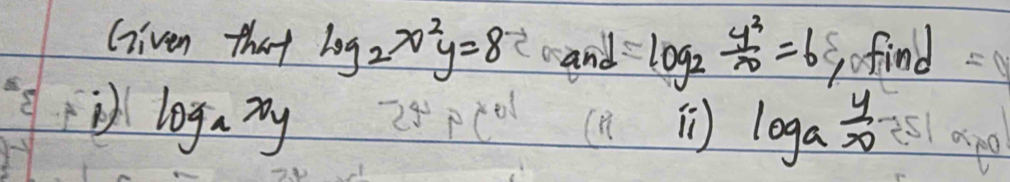 Given that log₂ x²y = 8 and log₂ y³/x = 6, find
i) logₐ xy ii) logₐ y/x